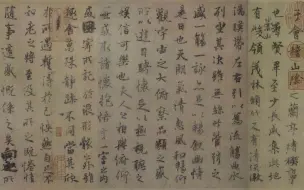 會稽山陰之蘭亭脩禊事
也群賢畢至少長咸集此地
有峻領茂林脩竹又有清流激
湍暎帶左右引以為流觴曲水
列坐其次雖無絲竹管弦之
盛一觴一詠亦足以暢叙幽情
是日也天朗氣清惠風和暢仰
觀宇宙之大俯察品類之盛
所以遊目騁懷足以極視聽之
娛信可樂也夫人之相與俯仰
一世或取諸懷抱悟言一室之內
或因寄所託放浪形骸之外雖
趣舍萬殊靜躁不同當其欣
知老之將至及其所之既惓情
隨事遷感慨係之矣向之所